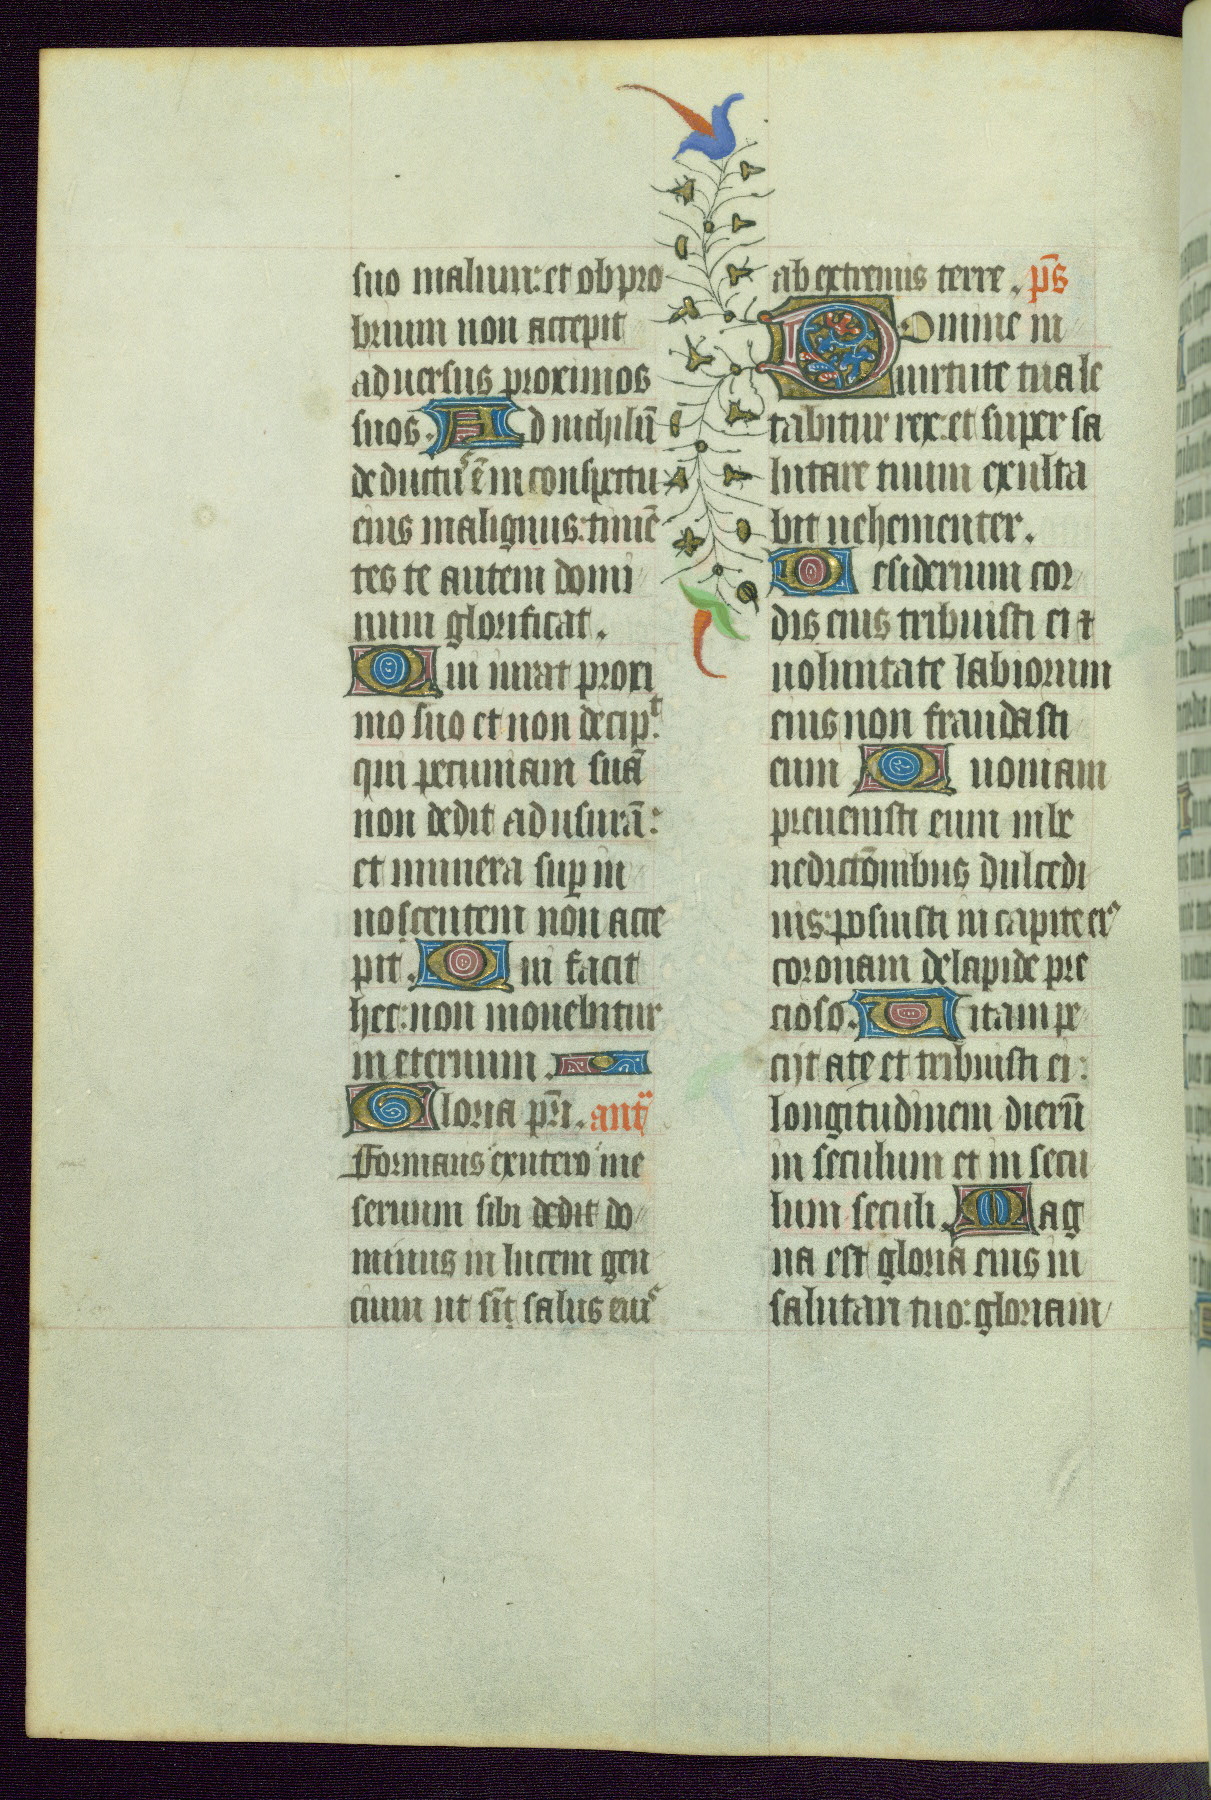 suo malum: et obpro
brium non accepit
aduersus proximos
suos. Ad nichilū
deductus ē in conspectu
eius malignus: timē
tes te autem domi
num glorificat.
Qui iurat proxi
mo suo et non decipᵗ:
qui pecuniam suā
non dedit ad usurā:
et munera sup in
noscentem non acce
pit. Qui facit
hec: non mouebitur
in eternum.
Gloria pr̄i. ant̄
Formans exutero me
seruum sibi dedit do
minus in lucem gen
cium ut sīt salus eius
ab extremis terre. ps̄
Domine in
uirtute tua le
tabitur rex: et super sa
lutare tuum exulta
bit uehementer.
Desiderium cor
dis eius tribuisti ei ⁊
uoluntate labiorum
eius non fraudasti
eum Quoniam
preuenisti eum in be
nedictōnibus dulcedi
nis: posuisti in capite eiꝰ
coronam de lapide pre
cioso. Uitam pe
cijt a te et tribuisti ei:
longitudinem dierū
in seculum et in secu
lum seculi. Mag
na est gloria eius in
salutari tuo: gloriam